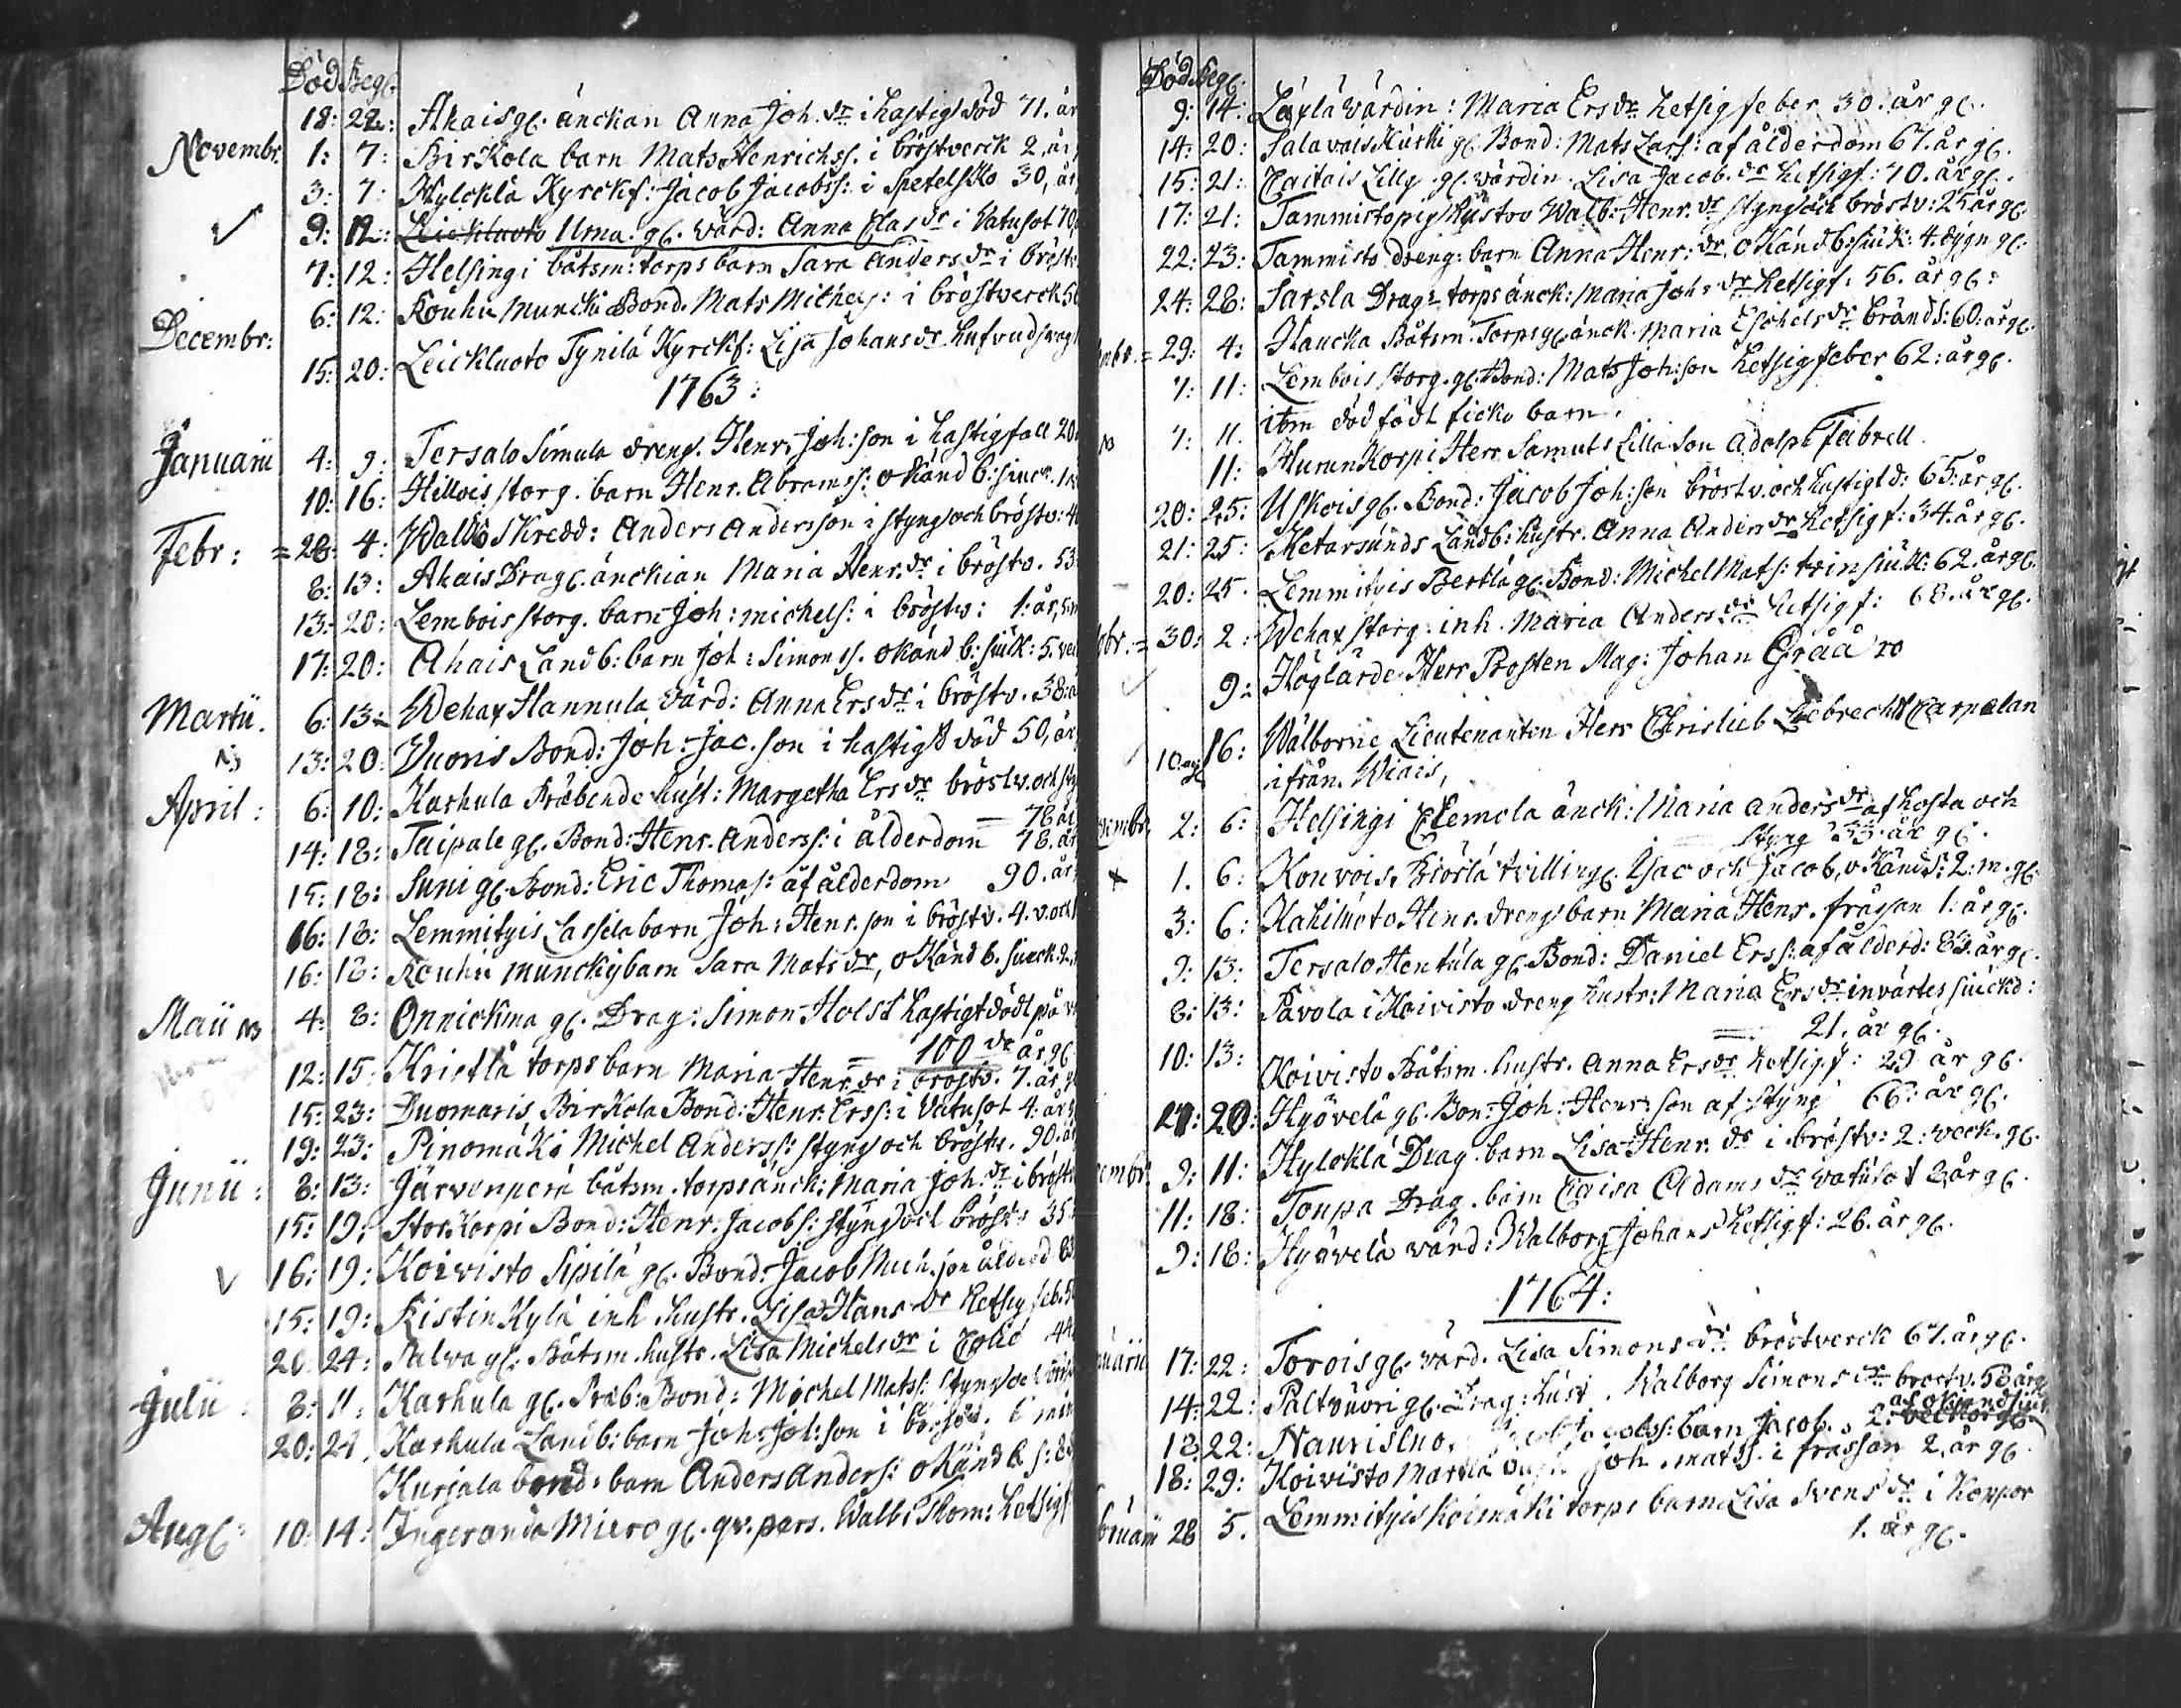 Död Begr.
18: 22: Ahais gl. änckan Anna Joh. dr i hastig död 71. år
Novembr. 1: 7: BirKola barn Mats Henrichss. i bröstverck 2. år
3: 7: Hylcklä Kyrckf: Jacob Jacobss: i SpetelsKo 30, år
9: 12: Leickluoto Urna. gl. värd: Anna Clas dr i Vatusot 70
7: 12: Helsingi båtsm: torps barn Sara Anders dr i bröst
6: 12: Kouhu Muncki Bond. Mats Michels: i bröstverck 50
Decembr:
15: 20: Leickluoto Tynilä Kyrckf: Lisa Johans dr hufvudswag
1763:
Januarii 4: 9: Tersalo Simula dreng. Henr. Joh:son i hastig fall 20
10: 16: Hillois storg. barn Henr. Abramss: oKänd b:siuck.
Febr: = 28: 4: Wallis Skredd: Anders Andersson i styng och bröstv: 4
8: 13: Ahais Drag gl. änckian Maria Henr. dr i bröstv. 53
13: 20: Lembois storg. barn Joh: michels: i bröstv: 1: år,
17: 20: Ahais Landb: barn Joh: Simonss. okänd b: siuk: 5. vec
Martii. 6: 13: Wehax Hannula värd: Anna Ers dr i bröstv. 38: å
13: 20: Vuoris Bond: Joh: Jac. son i hastigt död 50, år
April: 6: 10: Karhula Präbende hust: Margetha Ers dr bröstv. och sty
= 78 år
14: 18: Taipale gl. Bond: Henr. Anderss: i ålderdom 78. år
15: 18: Suni gl. Bond: Eric Thomas: af ålderdom 90. år
16: 18: Lemmityis Cassela barn Joh: Henr. son i bröstv. 4. v. och
16: 18: Kouhu munckiy barn Sara Mats dr, oKänd b. siuck 2.
Maii 4: 8: Onnickma gl. Drag: Simon Holst hastigt dödt på
= 100 de år gl
12: 15: Kristlä torps barn Maria Henr. dr i bröstv. 7. år,
15: 23: Duomaris BirKola Bond: Henr: Erss: i Vatusot 4: år
19: 23: PinomäKi Michel Anderss: styng och bröstv. 90. år
Junii: 8: 13: Järvenperä båtsm. torps änck: Maria Joh. dr i bröst
15: 19: StorKorpi Bond: Henr: Jacobs: styng och bröst: 35
16: 19: Koivisto Sipilä gl. Bond: Jacob Mich. son ålderd 8
15: 19: Kistinkylä inh. hustr. Lisa Hans dr Hetsig feb. 5
20: 24: Palva gl. Båtsm. hustr. Lisa Michels dr i Colic 44
Julii: 8: 11: Karhula gl. Præb. Bond: Michel Matss: styng och
20: 24. Karhula Landb: barn Joh: Joh:son i bröstv. 6
Kurjala bond: barn Anders Anders: oKänd b s: 8
Aug: 10: 14: Ingeranda Miero gl. qv. pers. Walb: Thom: hetsig
Död Begr.
9: 14: Läylä värdin: Maria Ers dr hetsig feber 30. år gl.
14: 20: Salavais Kurki gl. Bond: Mats Larss: af ålderdom 67. år gl.
15: 21: Caitais Lilly. gl. värdin. Lisa Jacob. dr hetsigf: 70. år gl.
17: 21: Tammisto pig Kustov Walb: Henr. dr styng och bröstv: 25 år gl.
22: 23: Tammisto dreng: barn Anna Henr: dr. oKänd b: siuk: 4. dygn gl.
24: 28: Särsla Drag: torps änck: Maria Joh: dr hetsigf: 56. år gl:
= 29: 4: Haucka Båtsm: Torps gl. änck. Maria Eschels dr bränds: 60: år gl.
7: 11: Lembois storg. gl. Bond: Mats Joh:son hetsig feber 62: år gl.
7: 11. item död födt flicko barn.
11: HurunKorpi Herr Samuels Lilla Son Adolph Fabrell.
20: 25: Uskois gl. Bond: Jacob Joh:son bröstv. och hastigt d: 65: år gl.
21: 25: Ketarsunds Landb: hustr. Anna Anders dr hetsigf: 34. år gl.
20: 25. Lemmityis Bertlä gl. Bond: Michel Mats: trin siuK: 62. år gl.
= 30: 2: Wehax storg. inh. Maria Anders dr hetsigf: 68. år gl.
9: Höglärde Herr Prosten Mag: Johan Gråå
10. 16: Wälborne Lieutenanten Herr Christlieb Lebrecht Carpelan
ifrån. Wiais,
2: 6: Helsingi Clemola änck: Maria Anders dr af hosta och
styng 33. år gl.
1. 6: Konvois, Biörlä tvillingl. Isac och Jacob, oKänds: 2: m. gl.
3: 6: Kahiluoto Henr. drengs barn Maria Henr. fråssan 1. år gl.
9: 13: Tersalo Hentula gl. Bond: Daniel Erss: af ålderd: 83. år gl.
8: 13: Pavola i Koivisto dreng hustr: Maria Ers dr invärtes siuckd:
= 21. år gl.
10: 13: Koivisto Båtsm. hustr. Anna Ers dr hetsigf: 29 år gl.
20: Hyövelä gl. Bon: Joh: Henr: son af styng 66: år gl.
9: 11: Hylcklä Drag. barn Lisa Henr. dr i bröstv: 2: veck. gl.
11: 18: Toupa Drag. barn Caisa Adams dr vatusot 2. år gl.
9: 18: Hyövelä värd: Walborg Johans hetsigf: 26. år gl.
1764:
17: 22: Torois gl. värd. Lisa Simons dr. bröstverck 67. år gl.
14: 22: Paltvuori gl. Drag: hust. Walborg Simons dr bröstv. 58 år gl
af okiändsiuk
18: 22: Nauris barn Jacob. 2: veckor gl.
18: 29: Koivisto Martla Joh. matss. i frassan 2. år gl.
28 5. Lemmityis Koimäki torps barn Lisa Svens dr i Koppor
1. år gl.